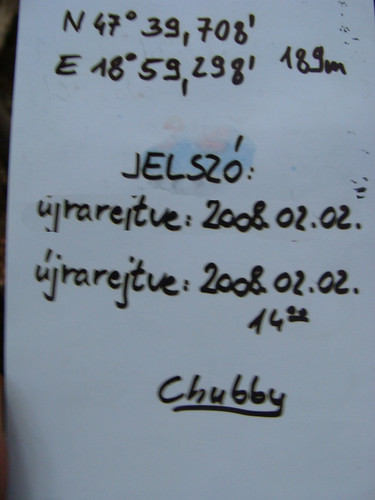 N 47° 39,708'
E 18° 59,298' 189m
JELSZÓ:
újrarejtve: 2008.02.02.
újrarejtve: 2008.02.02.
14⁰⁰
Chubby